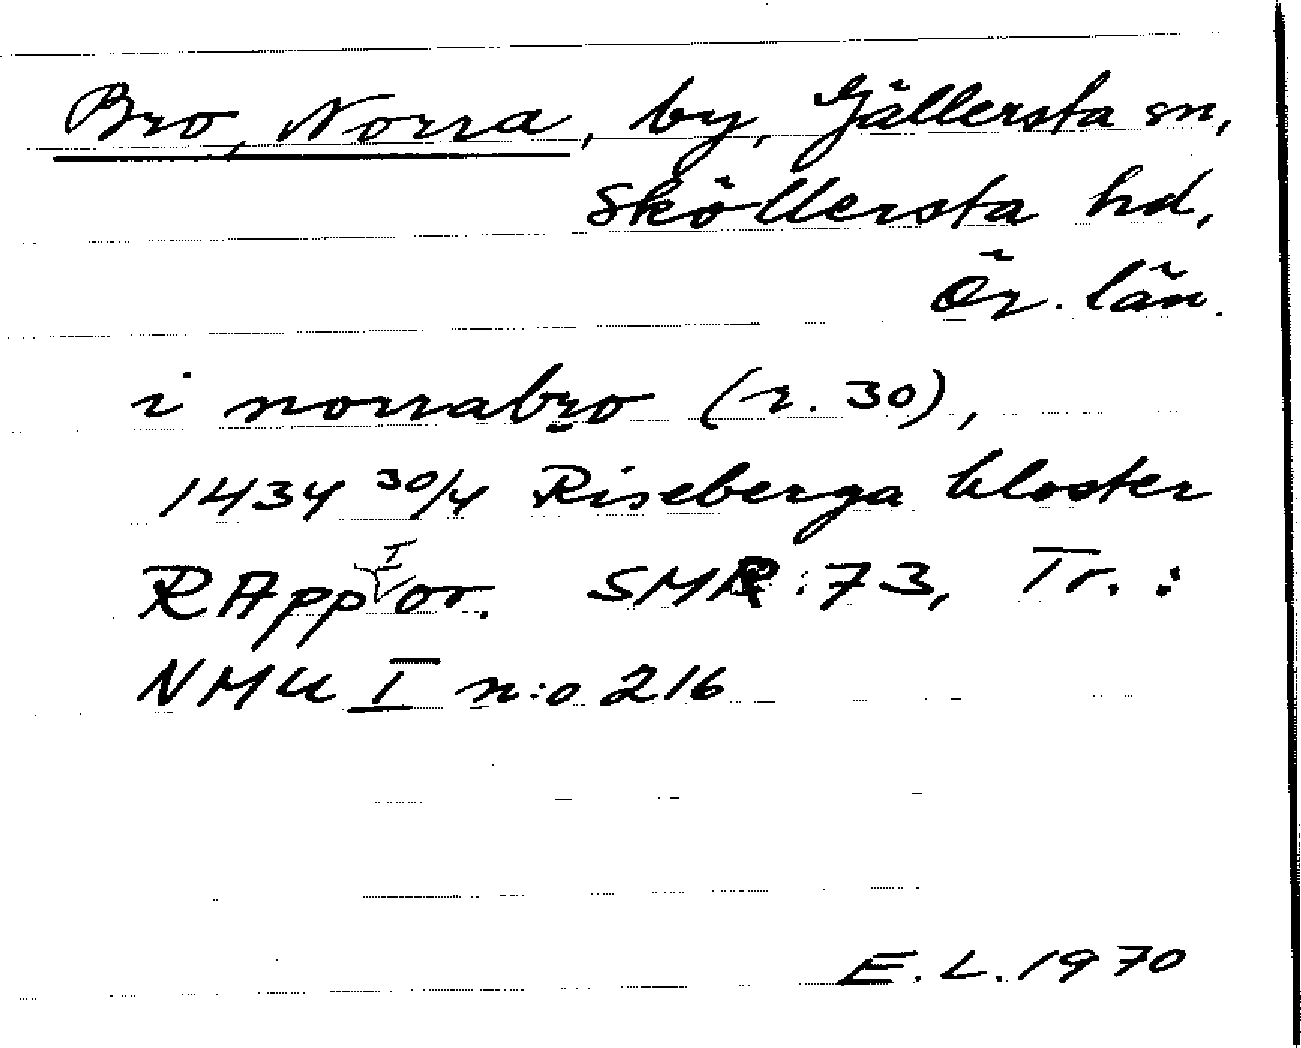 Bro, Norra, by, Gällersta sn,
Sköllersta hd,
Ör. län.
i norrabro (r. 30),
1434 30/4 Riseberga kloster
RApp I or. SMR:73, Tr.:
NMU I n:o 216
E.L. 1970